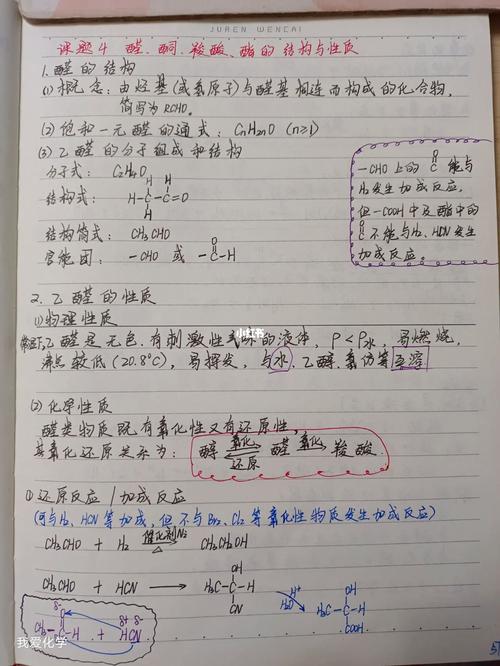 JUREN WENCAI
课题4 醛、酮、羧酸、酯的结构与性质
1. 醛的结构
(1) 概念：由烃基(或氢原子)与醛基相连而构成的化合物，
简写为RCHO。
(2) 饱和一元醛的通式：CnH2nO (n≥1)
(3) 乙醛的分子组成和结构
分子式：C2H4O
结构式：H-C-C=O
H H
H
结构简式：CH3CHO
官能团：-CHO 或 -C-H
O
-CHO上的 C 能与
O
H2发生加成反应。
但-COOH中及酯中的
O
C 不能与H2、HCN发生
加成反应。
小红书
2. 乙醛的性质
(1) 物理性质
常温下,乙醛是无色、有刺激性气味的液体，ρ<ρ水，易燃烧，
沸点较低(20.8℃)，易挥发，与水、乙醇、氯仿等互溶
(2) 化学性质
醛类物质既有氧化性又有还原性，
其氧化还原关系为：醇 氧化 还原 醛 氧化 羧酸
① 还原反应 / 加成反应
(可与H2、HCN等加成，但不与Br2、Cl2等氧化性物质发生加成反应)
CH3CHO + H2 催化剂 △ CH3CH2OH
CH3CHO + HCN → H3C-C-H
OH
CN
H+
H2O
H3C-C-H
OH
COOH
CH3-C-H + HCN
O
δ- δ+ δ+ δ-
我爱化学
5